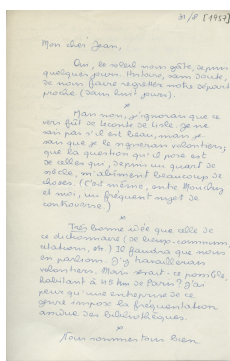 31/8 [1957]
Mon cher Jean,
Oui, le soleil nous gâte, depuis
quelques jours. Histoire, sans doute,
de nous faire regretter notre départ
proche (dans huit jours).
*
Mais non, j'ignorais que ce
vers fût de Leconte de Lisle. Je ne
sais pas s'il est beau, mais je
sais que je le signerais volontiers;
que la question qu'il pose est
de celles qui, depuis un quart de
siècle, m'alimentent beaucoup de
choses. (C'est même, entre
et moi, un fréquent sujet de
controverse.)
*
Très bonne idée que celle de
ce dictionnaire (de lieux-communs,
citations, etc.) Il faudra que nous
en parlions. J'y travaillerais
volontiers. Mais serait-ce possible,
habitant à 45 km de Paris? J'ai
peur qu'une entreprise de ce
genre impose la fréquentation
assidue des bibliothèques.
*
Nous sommes tous bien